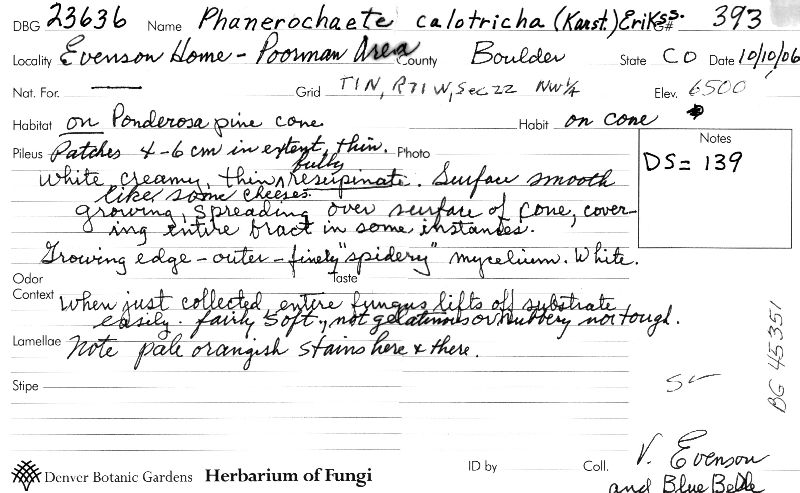 DBG 23636 Name Phanerochaete calotricha (Karst.) Erikss. # 393
Locality Evenson Home - Poorman Area County Boulder State CO Date 10/10/06
Nat. For. — Grid T1N, R71W, Sec 22 NW 1/4 Elev. 6500
Habitat on Ponderosa pine cone Habit on cone
Pileus Patches 4-6 cm in extent, thin. Photo
Notes
DS = 139
White, creamy, thin, fully resupinate. Surface smooth
like some cheeses.
growing, spreading over surface of cone, cover-
ing entire bract in some instances.
Growing edge - outer - finely "spidery" mycelium. White.
Odor Taste
Context When just collected, entire fungus lifts off substrate
easily. fairly soft, not gelatinous or rubbery nor tough.
Lamellae Note pale orangish stains here & there.
Stipe
BG 45351
Denver Botanic Gardens Herbarium of Fungi ID by Coll. V. Evenson
and Blue Belle